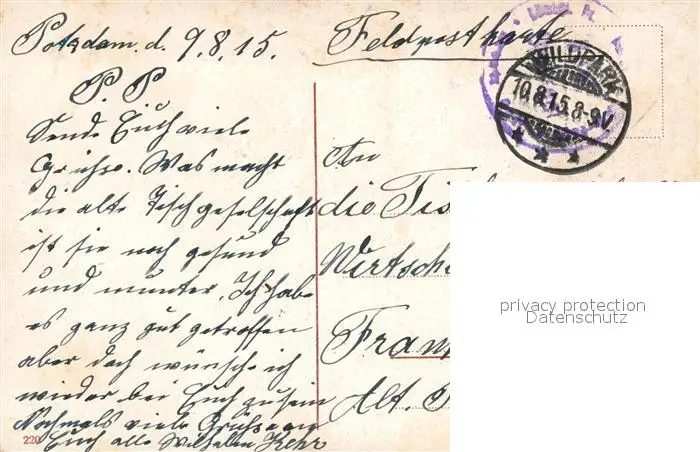 Potzdam. d. 9.8.15.
Feldpostkarte
P. P
WILDPARK
10.8.15.8-9V
Sende Euch viele
Grühse. Was macht
die alte Tischgeselschaft
ist sie noch gesund
und munter. Ich habe
es ganz gut getroffen
aber doch wünsche ich
wieder bei Euch zu sein
Nochmals viele Grühse an
Euch alle Wilhelm Kehr
220
An
die Tis
Wirtsch
Fran
Alt.
privacy protection
Datenschutz